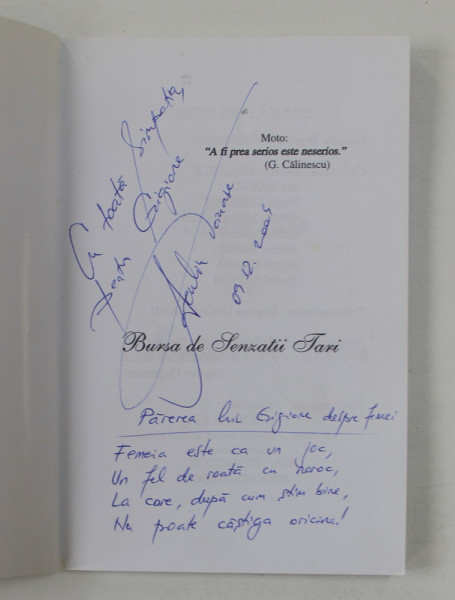 Moto:
“A fi prea serios este neserios.”
(G. Călinescu)
Cu toată simpatia,
pentru Gigiore
03.12.2005
Bursa de Senzatii Tari
Părerea lui Gigiore despre femei
Femeia este ca un joc,
Un fel de roată cu noroc,
La care, după cum știm bine,
Nu poate câștiga oricine!